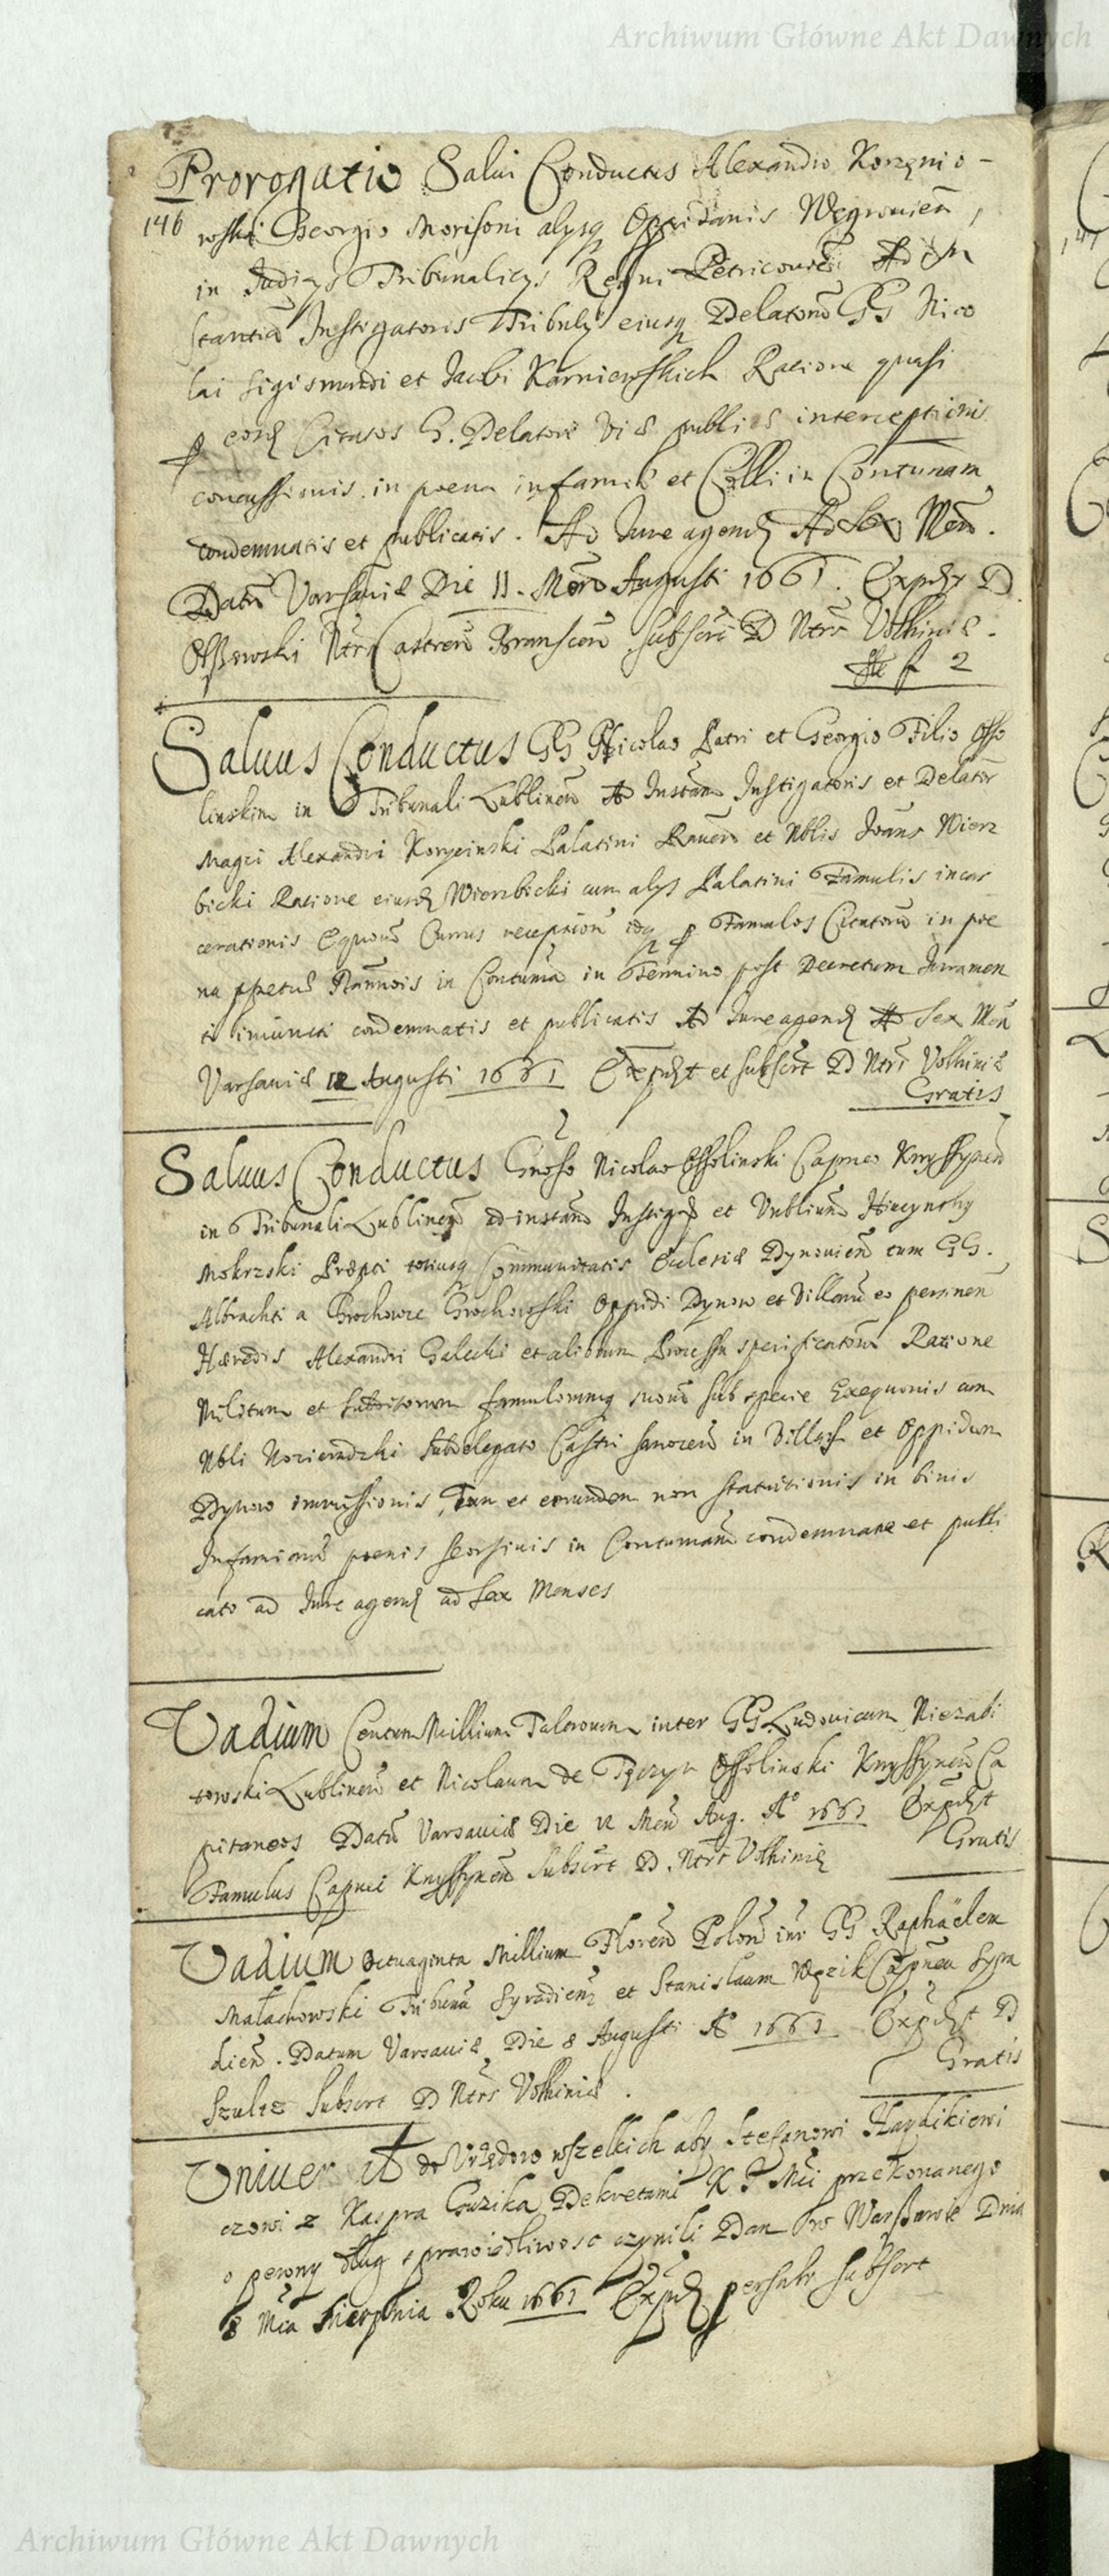 Archiwum Główne Akt Dawnych
Prorogatio Salui Conductus Alexandro Korzenio-
146 wski Georgio Morisoni alysq Oppidanis Węgrouien,
in Judicys Tribunalicys Regni Petricouien Ad In
stantia Instigatoris Tribnlis eiusq Delatoru GG Nico
lai Sigismundi et Jacobi Karniewskich Ratione quasi
p eosd Citatos G. Delatore viæ publicæ interceptionis
concussionis in poena infamiæ et Colli in Contumam
condemnatis et publicatis. Ad Jure agend Ad Sex Men.
Datu Varsauiæ Die 11. Men Augusti 1661. Expdt D
Ntri Castren Branscen subscri D Ntrs Volhiniæ.
f 2
Saluus Conductus GG Nicolao Patri et Georgio Filio Osso
linskim in Tribunali Lublinen Ad Instan Instigatoris et Delator
Magci Alexandri Korycinski Palatini Rauen et Nblis Joans Wierz
bicki Ratione eiusd Wierzbicki cum alys Palatini Famulis incar
cerationis Equoru Currus reception idq p Famulos Citatoru in poe
na ppetuæ Bannois in Contuma in Termino post Decretum Juramen
ti iniuncti condemnatis et publicatis Ad Jure agend Ad Sex Men
Varsauiæ 12 Augusti 1661 Expdt et subscrt D Ntrs Volhiniæ
Gratis
Saluus Conductus Gnoso Nicolao Ossolinski Capneo Knyssynen
in Tribunali Lublinen ad instan Instigr et Vnblium Hiacynthy
Mokrzski Præpti totiusq Communitatis Ecclesiæ Dynouien tum GG.
Albrachti a Grochowce Grochowski Oppidi Dynow et Villaru eo pertinen
Hæredis Alexandri Galecki et aliorum Processu specificatoru Ratione
Militum et subditorum famulorumq suoru sub specie Exequonis cum
Nbli Subdelegato Castri Sanocen in Villas et Oppidum
Dynow immissionis, Tum et eorundem non statuitionis in binis
Infamiaru poenis seorsiuis in Contumam condemnato et publi
cato ad Jure agend ad Sex Menses
Vadium Centum Millium Talerorum inter GG Ludouicum Niezabi
towski Lublinen et Nicolaum de Tęczyn Ossolinski Knyssynen Ca
pitaneos Datu Varsauiæ Die 12 Men Aug. Ao 1661 Expdt
Gratis
Famulus Capnei Knyssynen Subscrt D. Ntrs Volhiniæ
Vadium Octuaginta Millium Floren Polon intr GG Raphäelem
Małachowski Tribunu Syradien et Stanislaum Węzik Capneu Syra
dien. Datum Varsauiæ Die 8 Augusti Ao 1661 Expdt D
Gratis
Szultz Subscrt D Ntrs Volhiniæ.
Uniuersał do Vrzędow wszelkich aby Stefanowi Haydikiewi
czowi z Kaspra Guzika Dekretami K J Mci przekonanego
o pewny dług sprawiedliwosc czynili Dan w Warszawie Dnia
8 Mca Sierpnia Roku 1661 Expd subscrt
Archiwum Główne Akt Dawnych